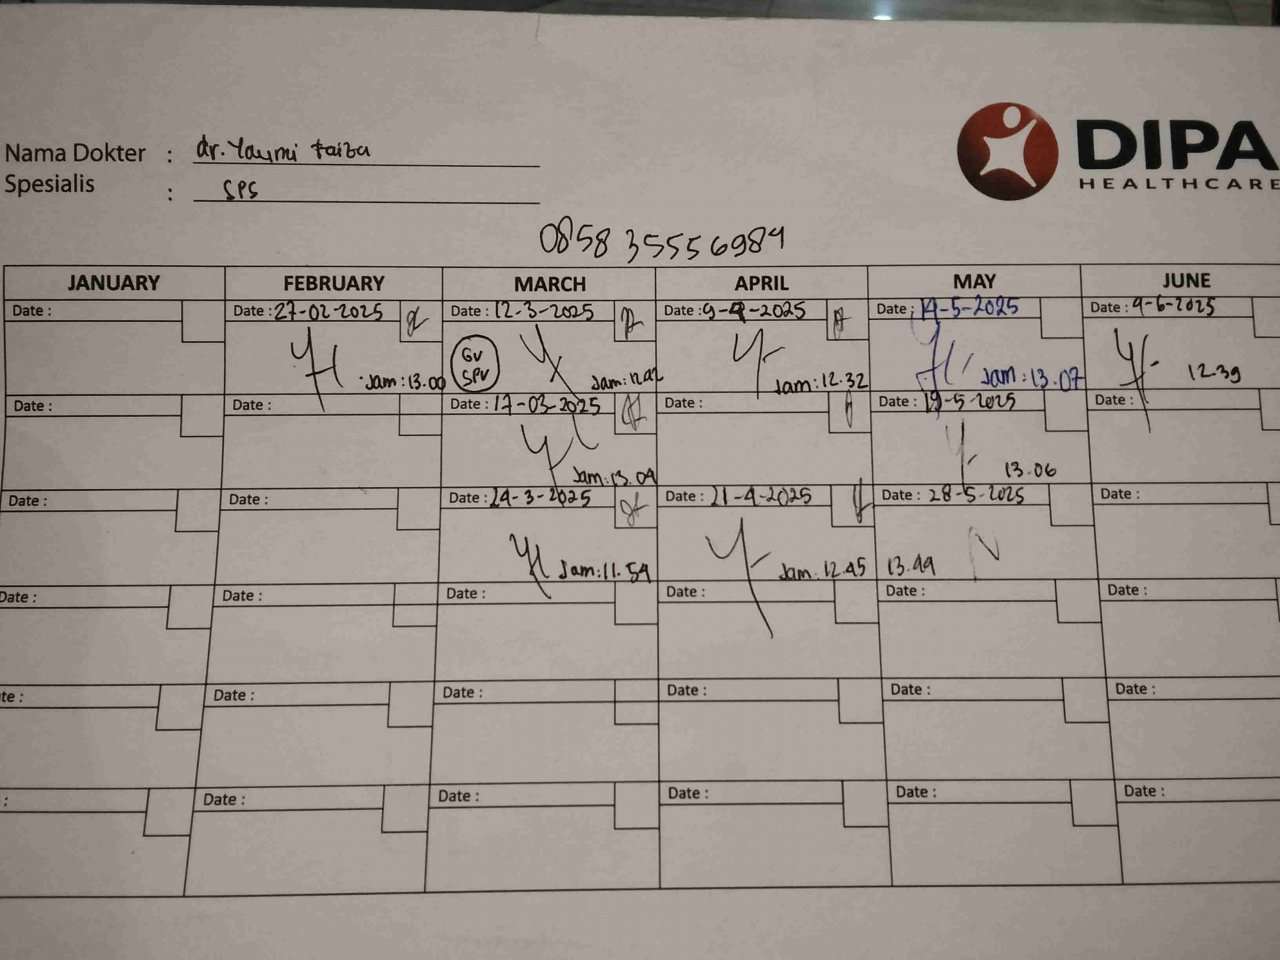 DIPA
HEALTHCARE
Nama Dokter : dr. Yaumi Faiza
Spesialis : SPS
0858 35556984
JANUARY FEBRUARY MARCH APRIL MAY JUNE
Date : Date : 27-02-2025 Date : 12-3-2025 Date : 9-4-2025 Date : 14-5-2025 Date : 9-6-2025
Jam : 13.00 GV SPV Jam : Jam : 12.32 Jam : 13.07 12.39
Date : Date : Date : 17-03-2025 Date : Date : 19-5-2025 Date :
Jam : 13.04 13.06
Date : Date : Date : 24-3-2025 Date : 21-4-2025 Date : 28-5-2025 Date :
Jam : 11.54 Jam : 12.45 13.44
Date : Date : Date : Date : Date : Date :
te : Date : Date : Date : Date : Date :
: Date : Date : Date : Date : Date :